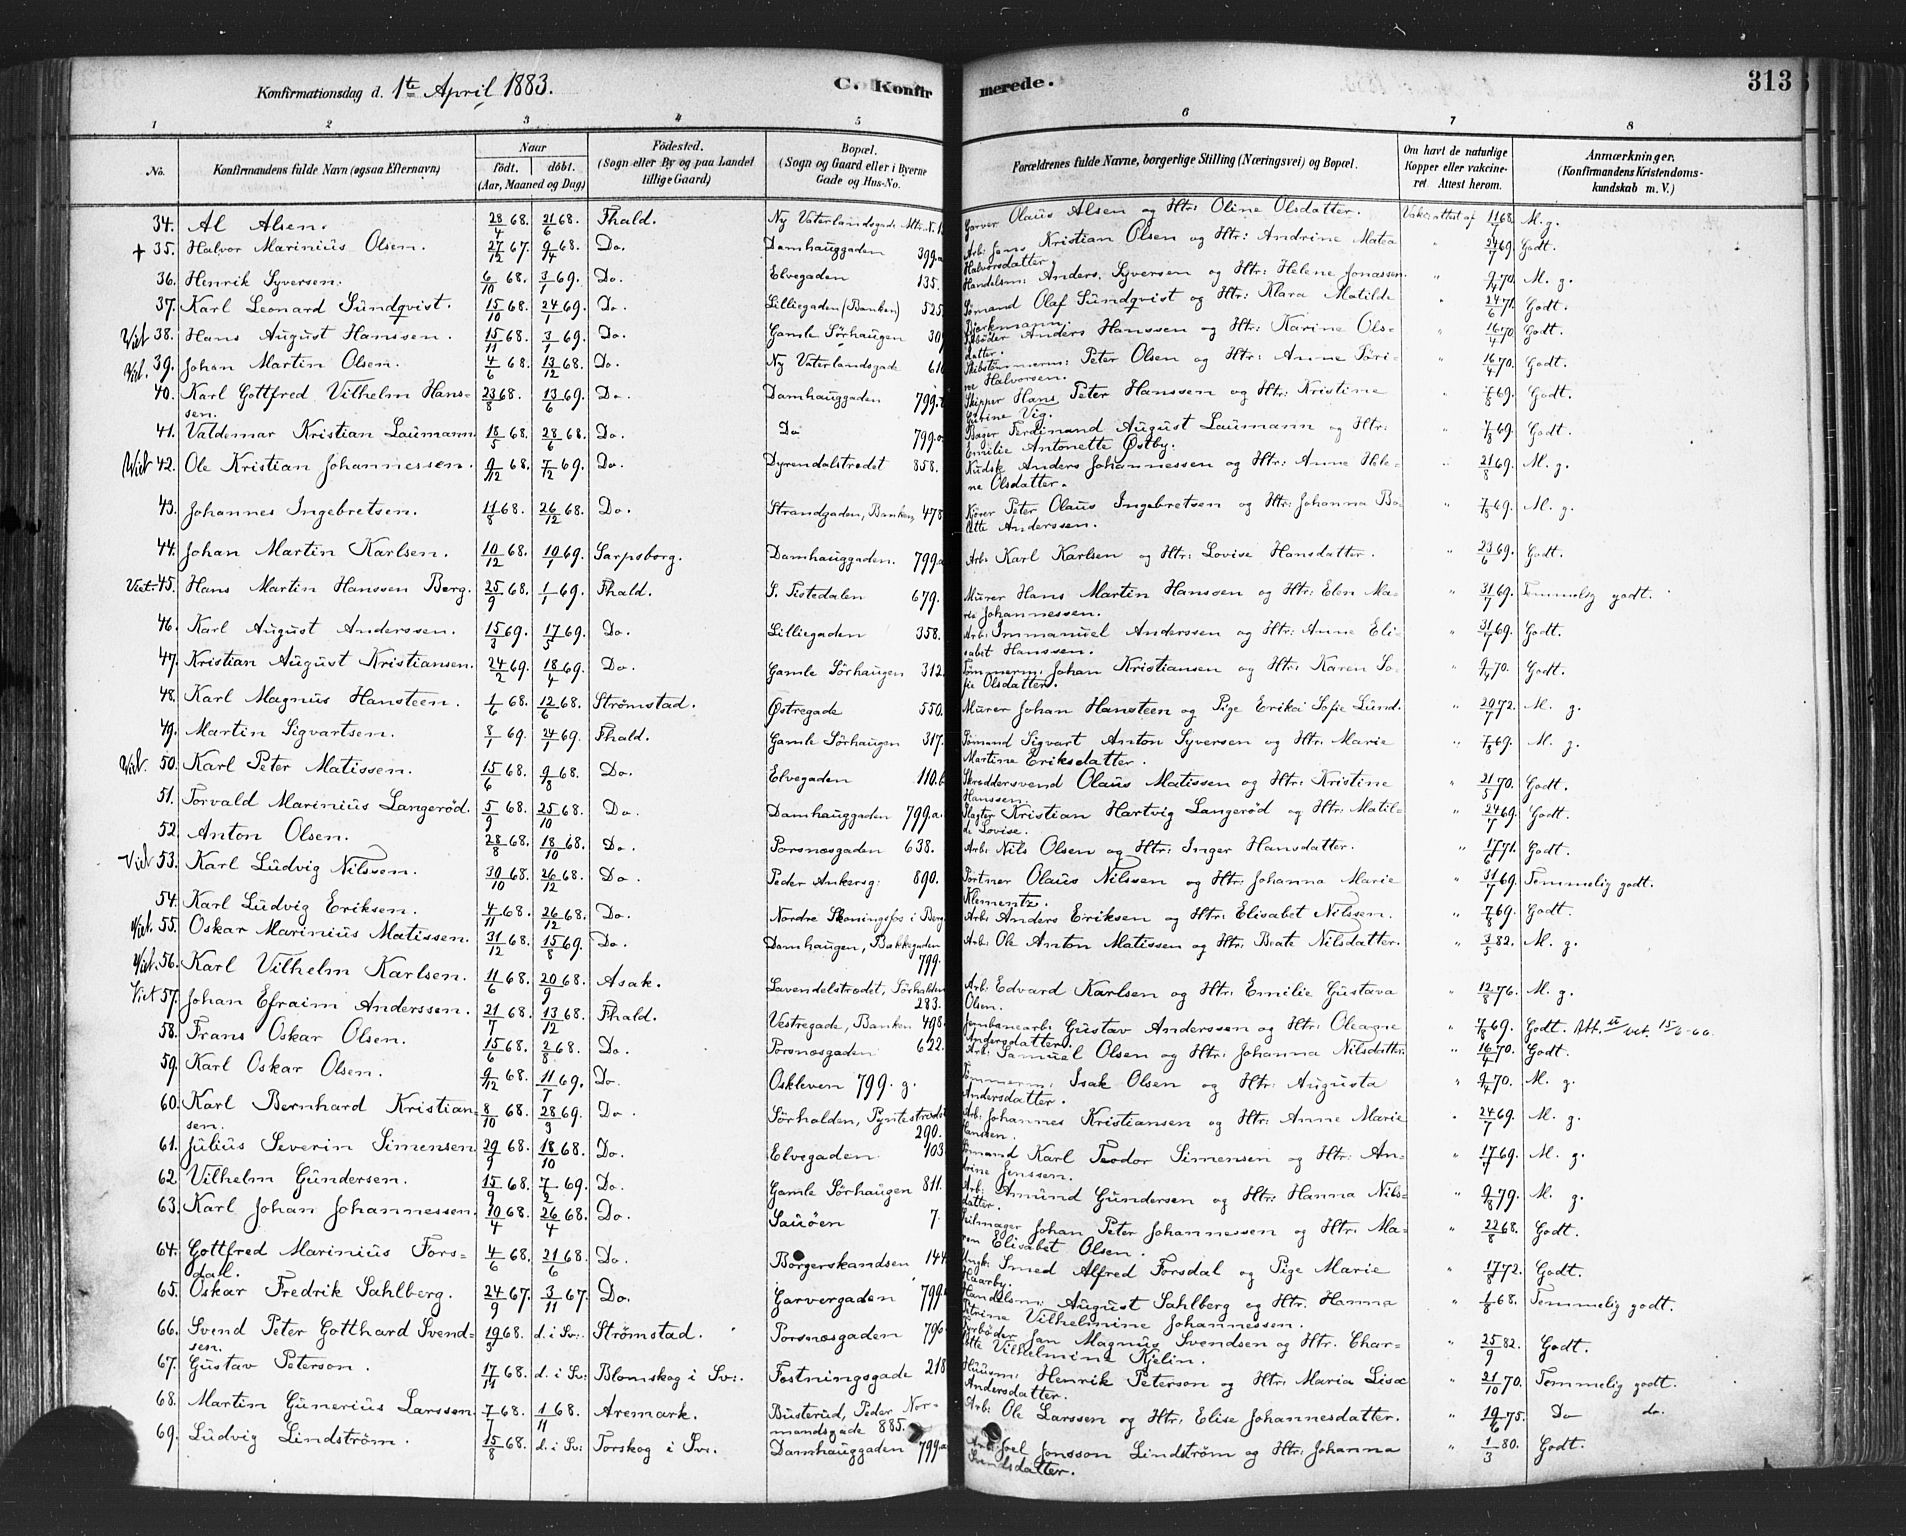 Konfirmationsdag d. 1te April 1883. C. Konfirmerede. 313
1 2 3 4 5 6 7 8
No. Konfirmandens fulde Navn (ogsaa Efternavn) Naar Født. døbt. (Aar, Maaned og Dag) Fødested. (Sogn eller By og paa Landet tillige Gaard) Bopæl. (Sogn og Gaard eller i Byerne Gade og Hus-No. Forældrenes fulde Navne, borgerlige Stilling (Næringsvei) og Bopæl. Om havt de naturlige Kopper eller vakcineret. Attest herom. Anmærkninger. (Konfirmandens Kristendomskundskab m. V.)
34. Al Alsen. 28/4 68. 21/6 68. Fhald. Ny Vaterlandsgade Garver Olaus Alsen og Htr: Oline Olsdatter. M. g.
+ 35. Halvor Marinius Olsen. 27/12 67. 9/4 68. Do. Damhauggaden 399a Arb: Jens Kristian Olsen og Htr: Andrine Matea Halvorsdatter. " 2/7 69. Godt.
36. Henrik Syversen. 6/10 68. 3/1 69. Do. Elvegaden 135. Handelsm: Anders Syversen og Htr: Helene Jonassen. " 9/4 70. M. g.
37. Karl Leonard Sundqvist. 15/10 68. 24/1 69. Do. Lilliegaden (Banken) 525. Sømand Olaf Sundqvist og Htr: Klara Matilde Bjørkmann. " 24/6 71. Godt.
Viet 38. Hans August Hanssen. 15/11 68. 3/1 69. Do. Gamle Sørhaugen 309 Anders Hanssen og Htr: Karine Olsdatter. " 16/4 70. Godt.
Viet. 39. Johan Martin Olsen. 4/6 68. 13/12 68. Do. Ny Vaterlandsgade 616 Skibstømmerm: Peter Olsen og Htr: Anne Sirine Halvorsen. " 16/4 70. Godt.
40. Karl Gottfred Vilhelm Hanssen. 23/8 68. 13/6 69. Do. Damhauggaden 799. Skipper Hans Peter Hanssen og Htr: Kristine Vig. " 7/8 69. Godt.
41. Valdemar Kristian Laumann 18/5 68. 28/6 68. Do. Do 799.a Bager Ferdinand August Laumann og Htr: Emilie Antonette Østby. " 7/8 69. Godt.
Viet 42. Ole Kristian Johannessen. 9/12 68. 7/2 69. Do. Dyrendalstrædet 858. Kudsk Anders Johannessen og Htr: Anne Helene Olsdatter. " 21/8 69. M. g.
43. Johannes Ingebretsen. 11/8 68. 26/12 68. Do. Strandgaden, Banken, 478 Kjører Peter Olaus Ingebretsen og Htr: Johanna Anderssen. " 7/8 69. M. g.
44. Johan Martin Karlsen. 10/12 68. 10/1 69. Sarpsborg. Damhauggaden. 799a Arb: Karl Karlsen og Htr: Lovise Hansdatter. " 23/6 69. Godt.
Viet. 45. Hans Martin Hanssen Berg. 25/9 68. 1/1 69. Fhald. S. Tistedalen 679. Murer Hans Martin Hanssen og Htr: Elen Marie Johannessen. " 31/7 69. Temmelig godt.
46. Karl August Anderssen. 15/3 69. 17/5 69. Do. Lilliegaden 358. Arb: Immanuel Anderssen og Htr: Anne Elisabet Hanssen. " 31/7 69. Godt.
47. Kristian August Kristiansen. 24/2 69. 18/4 69. Do. Gamle Sørhaugen 312. Tømmerm: Johan Kristiansen og Htr: Karen Sofie Olsdatter. " 9/4 70. Godt.
48. Karl Magnus Hansteen. 1/6 68. 12/6 68. Strømstad. Østregade 550. Murer Johan Hansteen og Pige Erika Sofie Lund. " 20/7 72. M. g.
49. Martin Sigvartsen. 8/1 69. 24/1 69. Fhald. Gamle Sørhaugen 317. Sømand Sigvart Anton Syversen og Htr: Marie Martine Eriksdatter. " 7/8 69. M. g.
Viet. 50. Karl Peter Matissen. 15/6 68. 9/8 68. Do. Elvegaden 110.b Skreddersvend Olaus Matissen og Htr: Kristine Hanssen. " 21/5 70. Godt.
51. Torvald Marinius Langerød. 5/9 68. 25/10 68. Do. Damhauggaden 799.a. Slagter Kristian Hartvig Langerød og Htr: Matilde Lovise. " 24/7 69. Godt.
52. Anton Olsen. 28/8 68. 18/10 68. Do. Porsnæsgaden 638. Arb: Nils Olsen og Htr: Inger Hansdatter. " 17/6 71. Godt.
Viet 53. Karl Ludvig Nilssen. 30/10 68. 26/12 68. Do. Peder Ankersg: 890. Portner Olaus Nilssen og Htr: Johanna Marie Klementz. " 31/7 69. Temmelig godt.
54. Karl Ludvig Eriksen. 4/11 68. 26/12 68. Do. Nordre Skoningsfos i Berg Arb: Anders Eriksen og Htr: Elisabet Nilssen. " 7/8 69. Godt.
Viet. 55. Oskar Marinius Matissen. 31/12 68. 15/8 69. Do. Damhaugen, Bakkegaden 799. Arb: Ole Anton Matissen og Htr: Beate Nilsdatter. " 3/5 82. M. g.
Viet. 56. Karl Vilhelm Karlsen. 11/6 68. 20/9 68. Asak. Lavendelstrædet, Sørhalden 283. Arb: Edvard Karlsen og Htr: Emilie Gustava Olsen. " 12/8 76. M. g.
Viet 57. Johan Efraim Anderssen. 21/7 68. 13/12 68. Fhald. Vestregade, Banken 498. Jernbanearb: Gustav Anderssen og Htr: Oleagne Andersdatter. " 7/8 69. Godt.
58. Frans Oskar Olsen. 15/6 68. 2/8 68. Do. Porsnæsgaden 622. Arb: Samuel Olsen og Htr: Johanna Nilsdatter. " 16/4 70. Godt.
59. Karl Oskar Olsen. 9/12 68. 11/7 69. Do. Oskleven 799. g. Tømmerm: Isak Olsen og Htr: Augusta Andersdatter. " 9/4 70. M. g.
60. Karl Bernhard Kristiansen. 8/10 68. 28/3 69. Do. Sørhalden, Pyntestrædet 290. Arb: Johannes Kristiansen og Htr: Anne Marie Hanssen. " 24/7 69. M. g.
61. Julius Severin Simensen 29/9 68. 18/10 68. Do. Elvegaden 403 Sømand Karl Teodor Simensen og Htr: Andrine Jenssen. " 17/7 69. M. g.
62 Vilhelm Gundersen. 15/9 68. 7/2 69. Do. Gamle Sørhaugen 811. Arb: Amund Gundersen og Htr: Hanna Nilsdatter. " 9/8 79. M. g.
63. Karl Johan Johannessen. 10/4 68. 26/4 68. Do. Sauøen 7. Seilmager Johan Peter Johannessen og Htr: Maren Elisabet Olsen. " 22/8 68. Godt.
64. Gottfred Marinius Forsdal. 4/6 68. 21/6 68. Do. Borgerskandsen 144 Ungk: Smed Alfred Forsdal og Pige Marie Haarby. " 17/8 72. Godt.
65. Oskar Fredrik Sahlberg. 24/9 67. 3/11 67. Do. Garvergaden 799 Handelsm: August Sahlberg og Htr: Hanna Petrine Vilhelmine Johannessen. " 1/8 68. Temmelig godt.
66. Svend Peter Gotthard Svendsen. 19/3 68. d. i Sv: Strømstad. Porsnæsgaden 796 Jan Magnus Svendsen og Htr. Charlotte Vilhelmine Kjelin. " 25/9 82. Godt.
67. Gustav Peterson. 17/11 68. d. i Sv: Blomskog i Sv:. Fæstningsgade 218 Huusm: Henrik Peterson og Htr: Maria Lisa Andersdatter. " 21/10 70. Temmelig godt.
68. Martin Gunerius Larssen 7/7 68. 1/11 68. Aremark. Busterud, Peder Normandsgade 885. Arb: Ole Larssen og Htr: Elise Johannesdatter. " 19/6 75. Do do.
69. Ludvig Lindström. 15/8 68. d. i Sv: Torskog i Sv: Damhauggaden 799a Arb: Joel Jonsson Lindström og Htr: Johanna Svendsdatter. " 1/3 80. Godt.